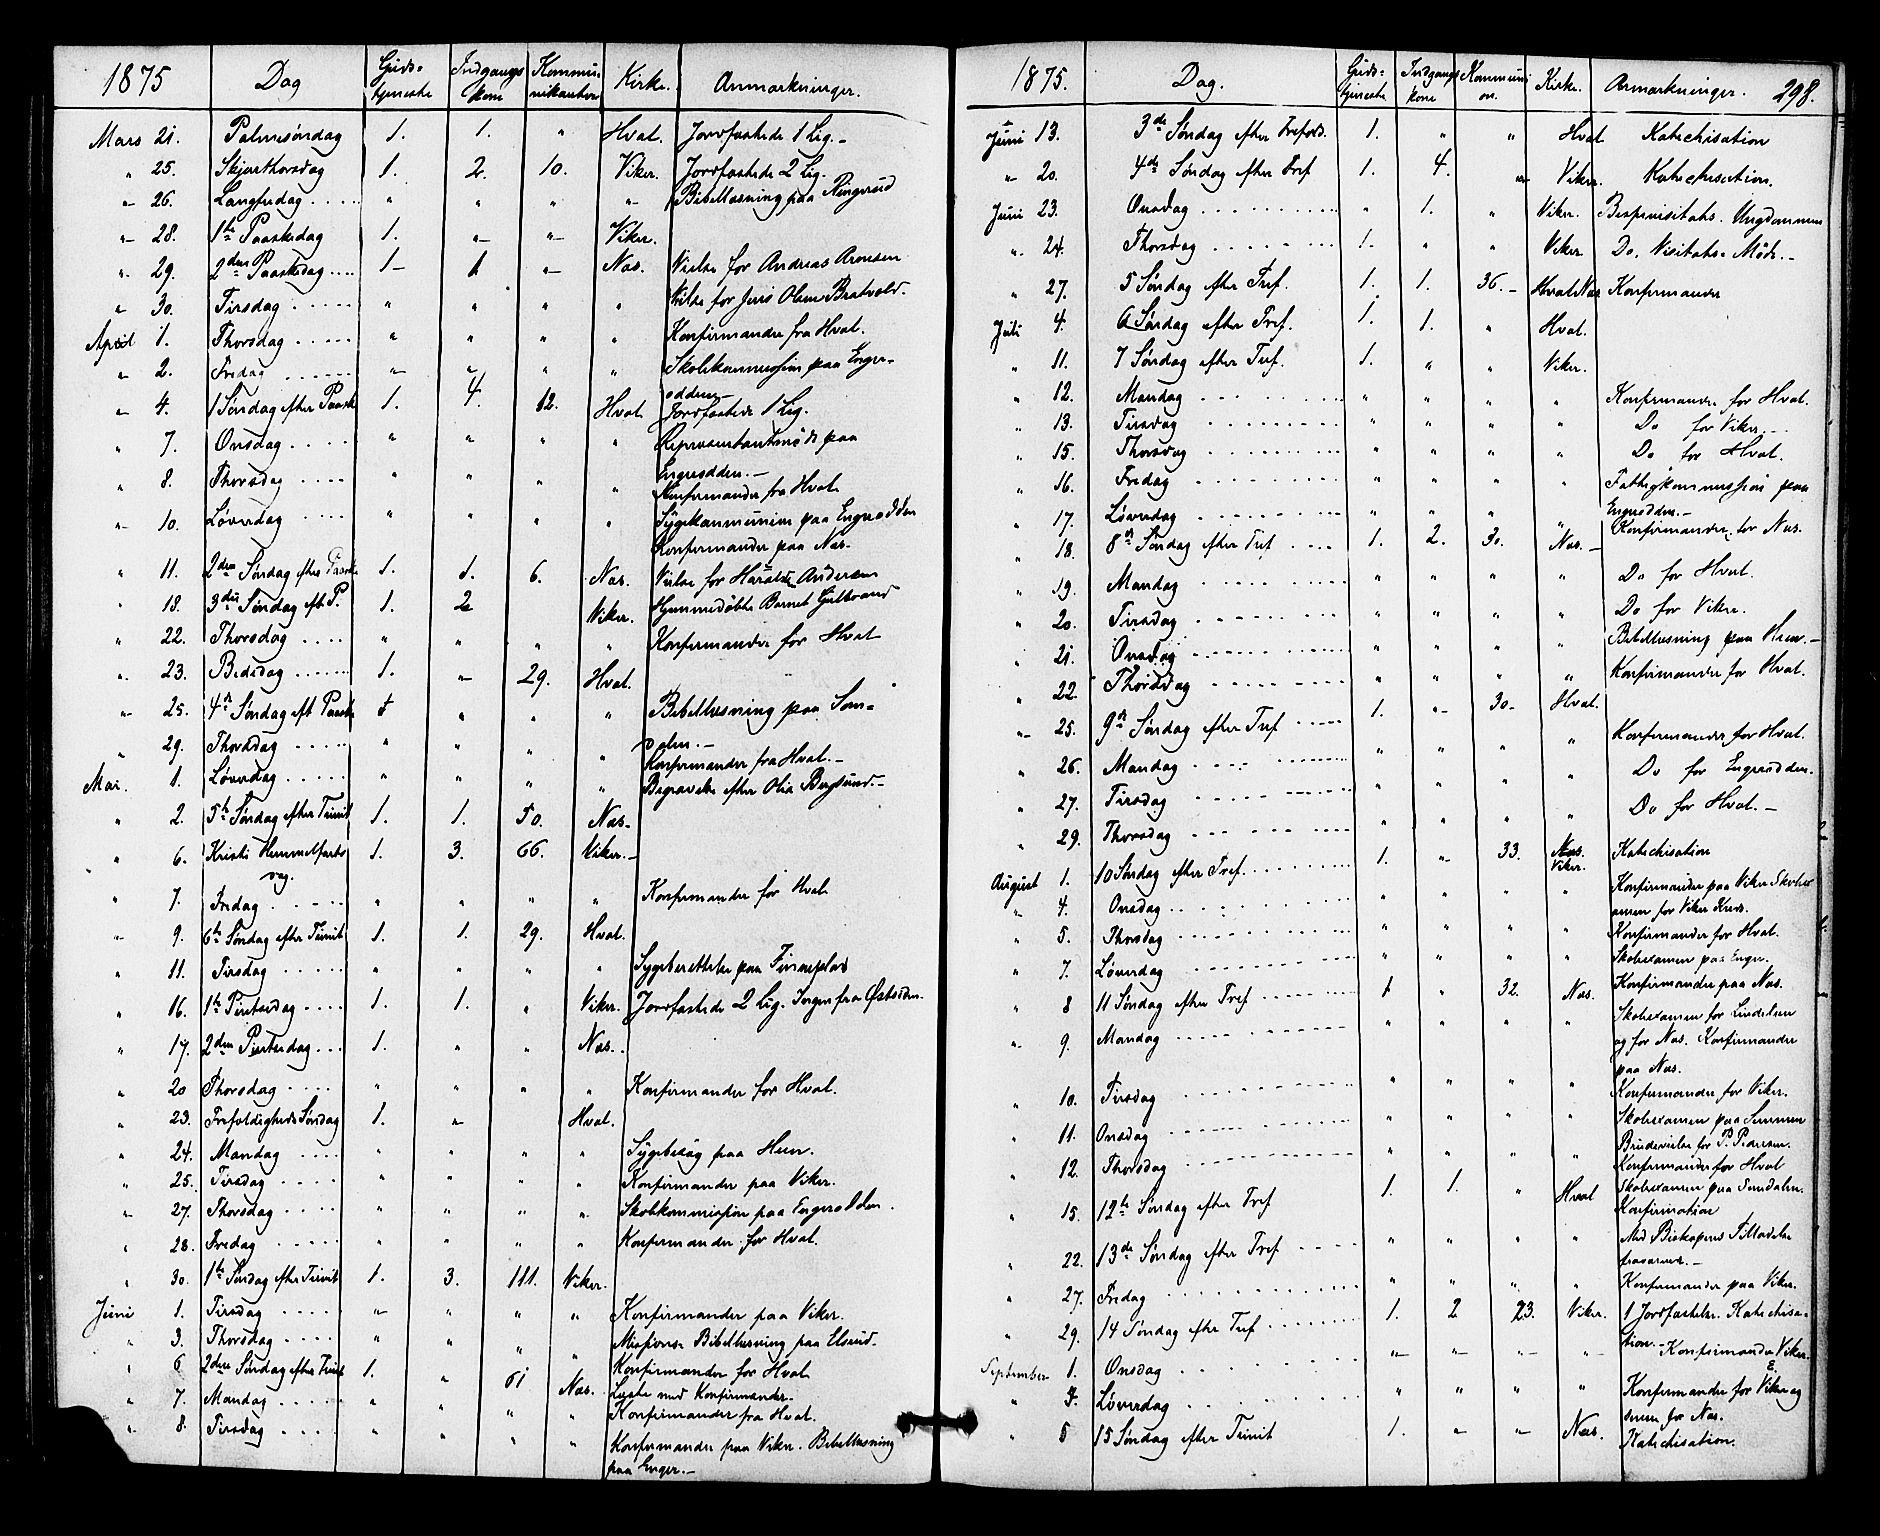 1875 Dag Guds- Indgangs Kommu- Kirke. Anmærkninger.
tjeneste kone nikanter
Mars 21. Palmesøndag 1. 1. " Hval. Jordfæstede 1 Lig. -
" 25. Skjærthorsdag 1. 2. 10. Viker. Jordfæstede 2 Lig.
" 26. Langfredag . . . . " " " " Bibellæsning paa Ringerud
" 28. 1ste Paaskedag 1. " " Viker.
" 29. 2den Paaskedag . . . . 1 - 1 " Næs. Vielse for Andreas Aronsen
" 30. Tirsdag . . . . . " " " " Vielse for Jens Olsen Bratvold.
April 1. Thorsdag . . . . . " " " " Konfirmander fra Hval.
" 2. Fredag . . . . . " " " " Skolekommission paa Enger-
odden -
" 4. 1 Søndag efter Paaske 1. 4. 12. Hval Jordfæstede 1 Lig.
" 7. Onsdag . . . . " " " " Repræsentantmøde paa
Engerodden. -
" 8. Thorsdag . . . . " " " " Konfirmander fra Hval
" 10. Løverdag . . . . " " " " Sygekommunion paa Engerodden
Konfirmander paa Næs.
" 11. 2den Søndag efter Paaske 1. 1. 6. Næs. Vielse for Harald Andersen
" 18. 3die Søndag eft P. 1. 2 Viker. Hjemmedøbte Barnet Gulbrand
" 22. Thorsdag . . . . " " " " Konfirmander for Hval
" 23. Bededag . . . . . 1. " 29. Hval.
" 25. 4de Søndag eft Paaske 1 " " " Bibellæsning paa Søn-
dalen. -
" 29. Thorsdag . . . . . " " " " Konfirmander fra Hval. -
Mai. 1. Løverdag . . . . . " " " " Begravelse efter Olia Bergsund. -
" 2. 5te Søndag efter Trinit 1. 1. 50. Næs.
" 6. Kristi Himmelfarts 1. 3. 66. Viker. -
dag.
" 7. Fredag . . . . . " " " " Konfirmander for Hval
" 9. 6te Søndag efter Trinit 1. 1. 29. Hval.
" 11. Tirsdag . . . . . " " " " Sygeberettelse paa Finneplads
" 16. 1ste Pintsedag . . 1. 1. " Viker. Jordfæstede 2 Lig. Ingen fra Østsiden.
" 17. 2den Pintsedag . . . 1. " " Næs.
" 20 Thorsdag . . . . " " " " Konfirmander for Hval.
" 23. Trefoldigheds Søndag 1. " Hval.
" 24. Mandag . . . . " " " " Sygebesøg paa Hæn.
" 25. Tirsdag . . . . " " " " Konfirmander paa Viker.
" 27. Thorsdag . . . . " " " " Skolekommission paa Engerodden.
" 28. Fredag . . . . . " " " " Konfirmander for Hval.
" 30. 1ste Søndag efter Trinit 1. 3. 111. Viker.
Juni 1. Tirsdag . . . . . " " " " Konfirmander paa Viker.
" 3. Thorsdag . . . . " " " " Missions- Bibellæsning paa Elsrud.
" 6 2den Søndag efter Trinit 1. " 61 Næs. Konfirmander for Hval
" 7. Mandag . . . . . " " " " Læste med Konfirmander.
Konfirmander fra Hval.
" 8. Tirsdag . . . . . " " " " Konfirmander paa Viker. Bibellæsning
paa Enger. -
1875. Dag. Guds- Indgangs Kommuni Kirke. Anmærkninger. 298.
tjeneste kone on.
Juni 13. 3de Søndag efter Trefold. 1. " " Hval Katechisation
" 20. 4de Søndag efter Tref 1. 4. " Viker. Katechisation.
Juni 23. Onsdag . . . . . " 1. " Viker. Bispevisitats. Ungdommen
" 24. Thorsdag . . . . . 1. " " Viker. Do. Visitats- Møde. -
" 27. 5 Søndag efter Tref. 1. 1. 36. - Hval Næs Konfirmander
Juli 4. 6 Søndag efter Tref. 1. 1. " Hval.
" 11. 7 Søndag efter Tref. 1. " " Viker.
" 12. Mandag . . . . . " " " " Konfirmander for Hval.
" 13. Tirsdag . . . . . " " " " Do for Viker. -
" 15. Thorsdag . . . . . " " " " Do for Hval.
" 16. Fredag . . . . . " " " " Fattigkommission paa
Engerodden. -
" 17. Løverdag . . . . . " " " " Konfirmander for Næs.
" 18. 8de Søndag efter Tref . . . . 1. 2. 30. Næs. -
" 19. Mandag . . . . . " " " " Do for Hval.
" 20. Tirsdag . . . . . " " " " Do for Viker.
" 21. Onsdag . . . . . " " " " Bibellæsning paa Hæn. -
" 22. Thorsdag . . . . . " " " " Konfirmander for Hval.
" 25. 9de Søndag efter Tref . . . . 1. " 30 - Hval.
" 26. Mandag . . . . . " " " " Konfirmander for Hval.
" 27. Tirsdag . . . . . " " " " Do for Engerodden.
" 29. Thorsdag . . . . . " " " " Do for Hval. -
August 1. 10 Søndag efter Tref. . . . . 1. " 33. Næs. Katechisation
Viker.
" 4. Onsdag . . . . . " " " " Konfirmander paa Viker Skolex
amen for Viker Kreds.
" 5. Thorsdag . . . . . " " " " Konfirmander for Hval.
" 7. Løverdag . . . . . " " " " Skolexamen paa Enger.
" 8 11 Søndag efter Tref . . . . 1 " 32. Næs. Konfirmander paa Næs.
" 9. Mandag . . . . . " " " " Skolexamen for Lindelien
og for Næs. Konfirmander
paa Næs.
" 10. Tirsdag . . . . . " " " " Konfirmander for Viker.
" 11. Onsdag . . . . . " " " " Skolexamen paa Semmen
Brudevielse for P. Pedersen.
" 12. Thorsdag . . . . . " " " " Konfirmander for Hval
Skolexamen paa Søndalen.
" 15. 12te Søndag efter Tref 1. 1. " Hval Konfirmation
" 22. 13de Søndag efter Tref . . . . " " " " Med Biskopens Tilladelse
fraværende. -
" 27. Fredag . . . . . " " " " Konfirmander paa Viker.
" 29. 14 Søndag efter Tref . . . . 1. 2 23. Viker. 1 Jordfæstelse. Katechisa-
tion. -
September 1. Onsdag . . . . . " " " " Konfirmander Viker.
" 4. Løverdag . . . . . " " " " Konfirmander for Viker og
for Næs.
" 5 15 Søndag efter Trinit 1. " " Næs. Katechisation.